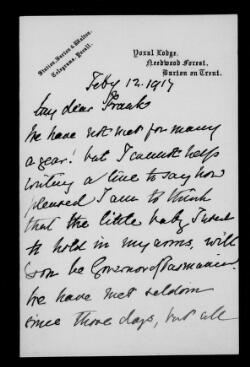 Station, Barton & Walton.
Telegrams, Yoxall.
Yoxall Lodge,
Needwood Forest,
Burton on Trent.
Feby 12. 1917
My dear Frank
We have not met for many
a year! but I cannot help
writing a line to say how
pleased I am to think
that the little baby I used
to hold in my arms, will
soon be Governor of Tasmania.
We have met seldom
since those days, but all